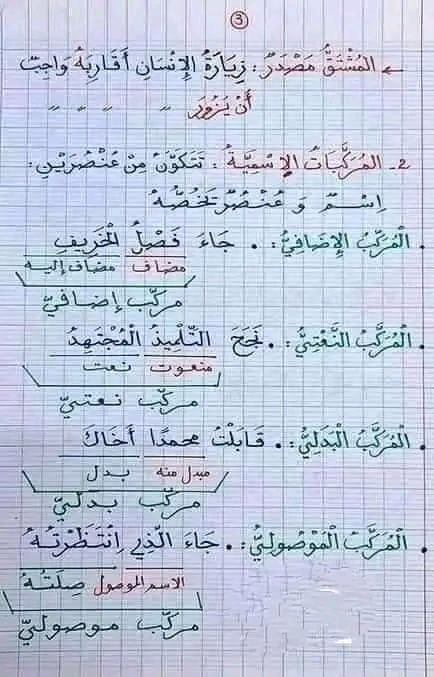 3
← المُشْتَقُّ مَصْدَرٌ : زِيَارَةُ الإِنْسَانِ أَقَارِبَهُ وَاجِبٌ
أَنْ يَزُورَ " " " "
2- المُرَكَّبَاتُ الإِسْمِيَّةُ : تَتَكَوَّنُ مِنْ عُنْصُرَيْنِ :
اِسْمٌ وَ عُنْصُرٌ يَخُصُّهُ
• الْمُرَكَّبُ الإِضَافِيُّ : • جَاءَ فَصْلُ الْخَرِيفِ
مضاف مضاف إليه
مركّب إضافيّ
• الْمُرَكَّبُ النَّعْتِيُّ : • نَجَحَ التِّلْمِيذُ الْمُجْتَهِدُ
منعوت نعت
مركّب نعتيّ
• الْمُرَكَّبُ الْبَدَلِيُّ : • قَابَلْتُ محمدًا أَخَاكَ
مبدل منه بدل
مركّب بدليّ
• الْمُرَكَّبُ الْمَوْصُولِيُّ : • جَاءَ الَّذِي اِنْتَظَرْتُهُ
الاسم الموصول صِلَتُهُ
مركّب موصوليّ